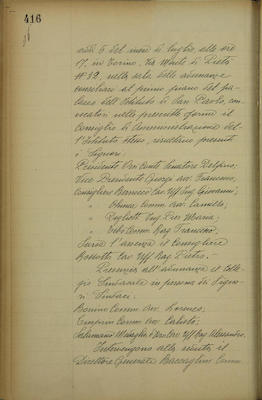 416
addì 6 del mese di luglio, alle ore
17, in Torino, Via Monte di Pietà
N° 32, nella sala delle adunanze
consiliari al primo piano del pa-
lazzo dell'Istituto di San Paolo, con-
vocatosi nelle prescritte forme il
Consiglio di Amministrazione del-
l'Istituto stesso, risultano presenti
i Signori:
Presidente On. Conte Senatore Delfino;
Vice Presidente Avv. Francesco;
Consiglieri Cav. Uff. Ing. Giovanni;
" Comm. Avv. Camillo;
" Ing. Pier Maria;
" Comm. Rag. Francesco.
Scusa l'assenza il Consigliere
Cav. Uff. Rag. Pietro.
Presenzia all'adunanza il Colle-
gio Sindacale in persona dei Signo-
ri Sindaci:
Bonino Comm. Avv. Lorenzo;
Comm. Avv.
Cav. Uff. Rag. Alessandro.
Intervengono alla seduta il
Direttore Generale Comm.